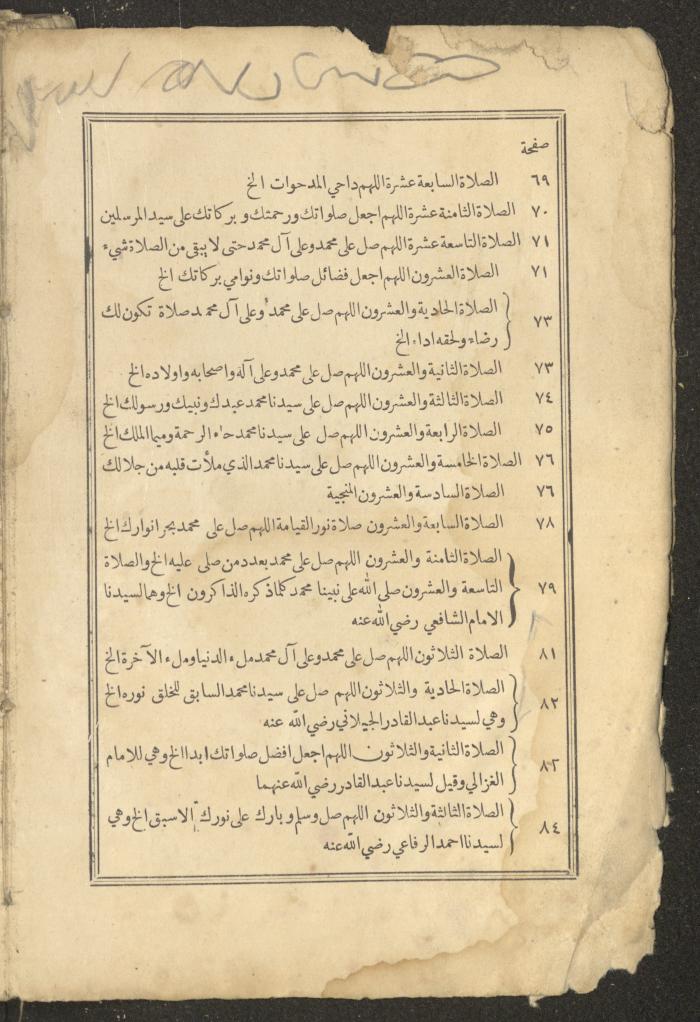 صفحة
٦٩ الصلاة السابعة عشرة اللهم داحي المدحوات الخ
٧٠ الصلاة الثامنة عشرة اللهم اجعل صلواتك ورحمتك وبركاتك على سيد المرسلين
٧١ الصلاة التاسعة عشرة اللهم صل على محمد وعلى آل محمد حتى لا يبقى من الصلاة شيء
٧١ الصلاة العشرون اللهم اجعل فضائل صلواتك ونوامي بركاتك الخ
٧٣ الصلاة الحادية والعشرون اللهم صل على محمد وعلى آل محمد صلاة تكون لك
رضاء ولحقه اداء الخ
٧٣ الصلاة الثانية والعشرون اللهم صل على محمد وعلى آله واصحابه واولاده الخ
٧٤ الصلاة الثالثة والعشرون اللهم صل على سيدنا محمد عبدك ونبيك ورسولك الخ
٧٥ الصلاة الرابعة والعشرون اللهم صل على سيدنا محمد حاء الرحمة وميما الملك الخ
٧٦ الصلاة الخامسة والعشرون اللهم صل على سيدنا محمد الذي ملأت قلبه من جلالك
٧٦ الصلاة السادسة والعشرون المنجية
٧٨ الصلاة السابعة والعشرون صلاة نور القيامة اللهم صل على محمد بحر انوارك الخ
الصلاة الثامنة والعشرون اللهم صل على محمد بعدد من صلى عليه الخ والصلاة
٧٩ التاسعة والعشرون صلى الله على نبينا محمد كلما ذكره الذاكرون الخ وهما لسيدنا
الامام الشافعي رضي الله عنه
٨١ الصلاة الثلاثون اللهم صل على محمد وعلى آل محمد ملء الدنيا وملء الآخرة الخ
٨٢ الصلاة الحادية والثلاثون اللهم صل على سيدنا محمد السابق للخلق نوره الخ
وهي لسيدنا عبد القادر الجيلاني رضي الله عنه
٨٣ الصلاة الثانية والثلاثون اللهم اجعل افضل صلواتك ابدا الخ وهي للامام
الغزالي وقيل لسيدنا عبد القادر رضي الله عنهما
٨٤ الصلاة الثالثة والثلاثون اللهم صل وسلم وبارك على نورك الاسبق الخ وهي
لسيدنا احمد الرفاعي رضي الله عنه